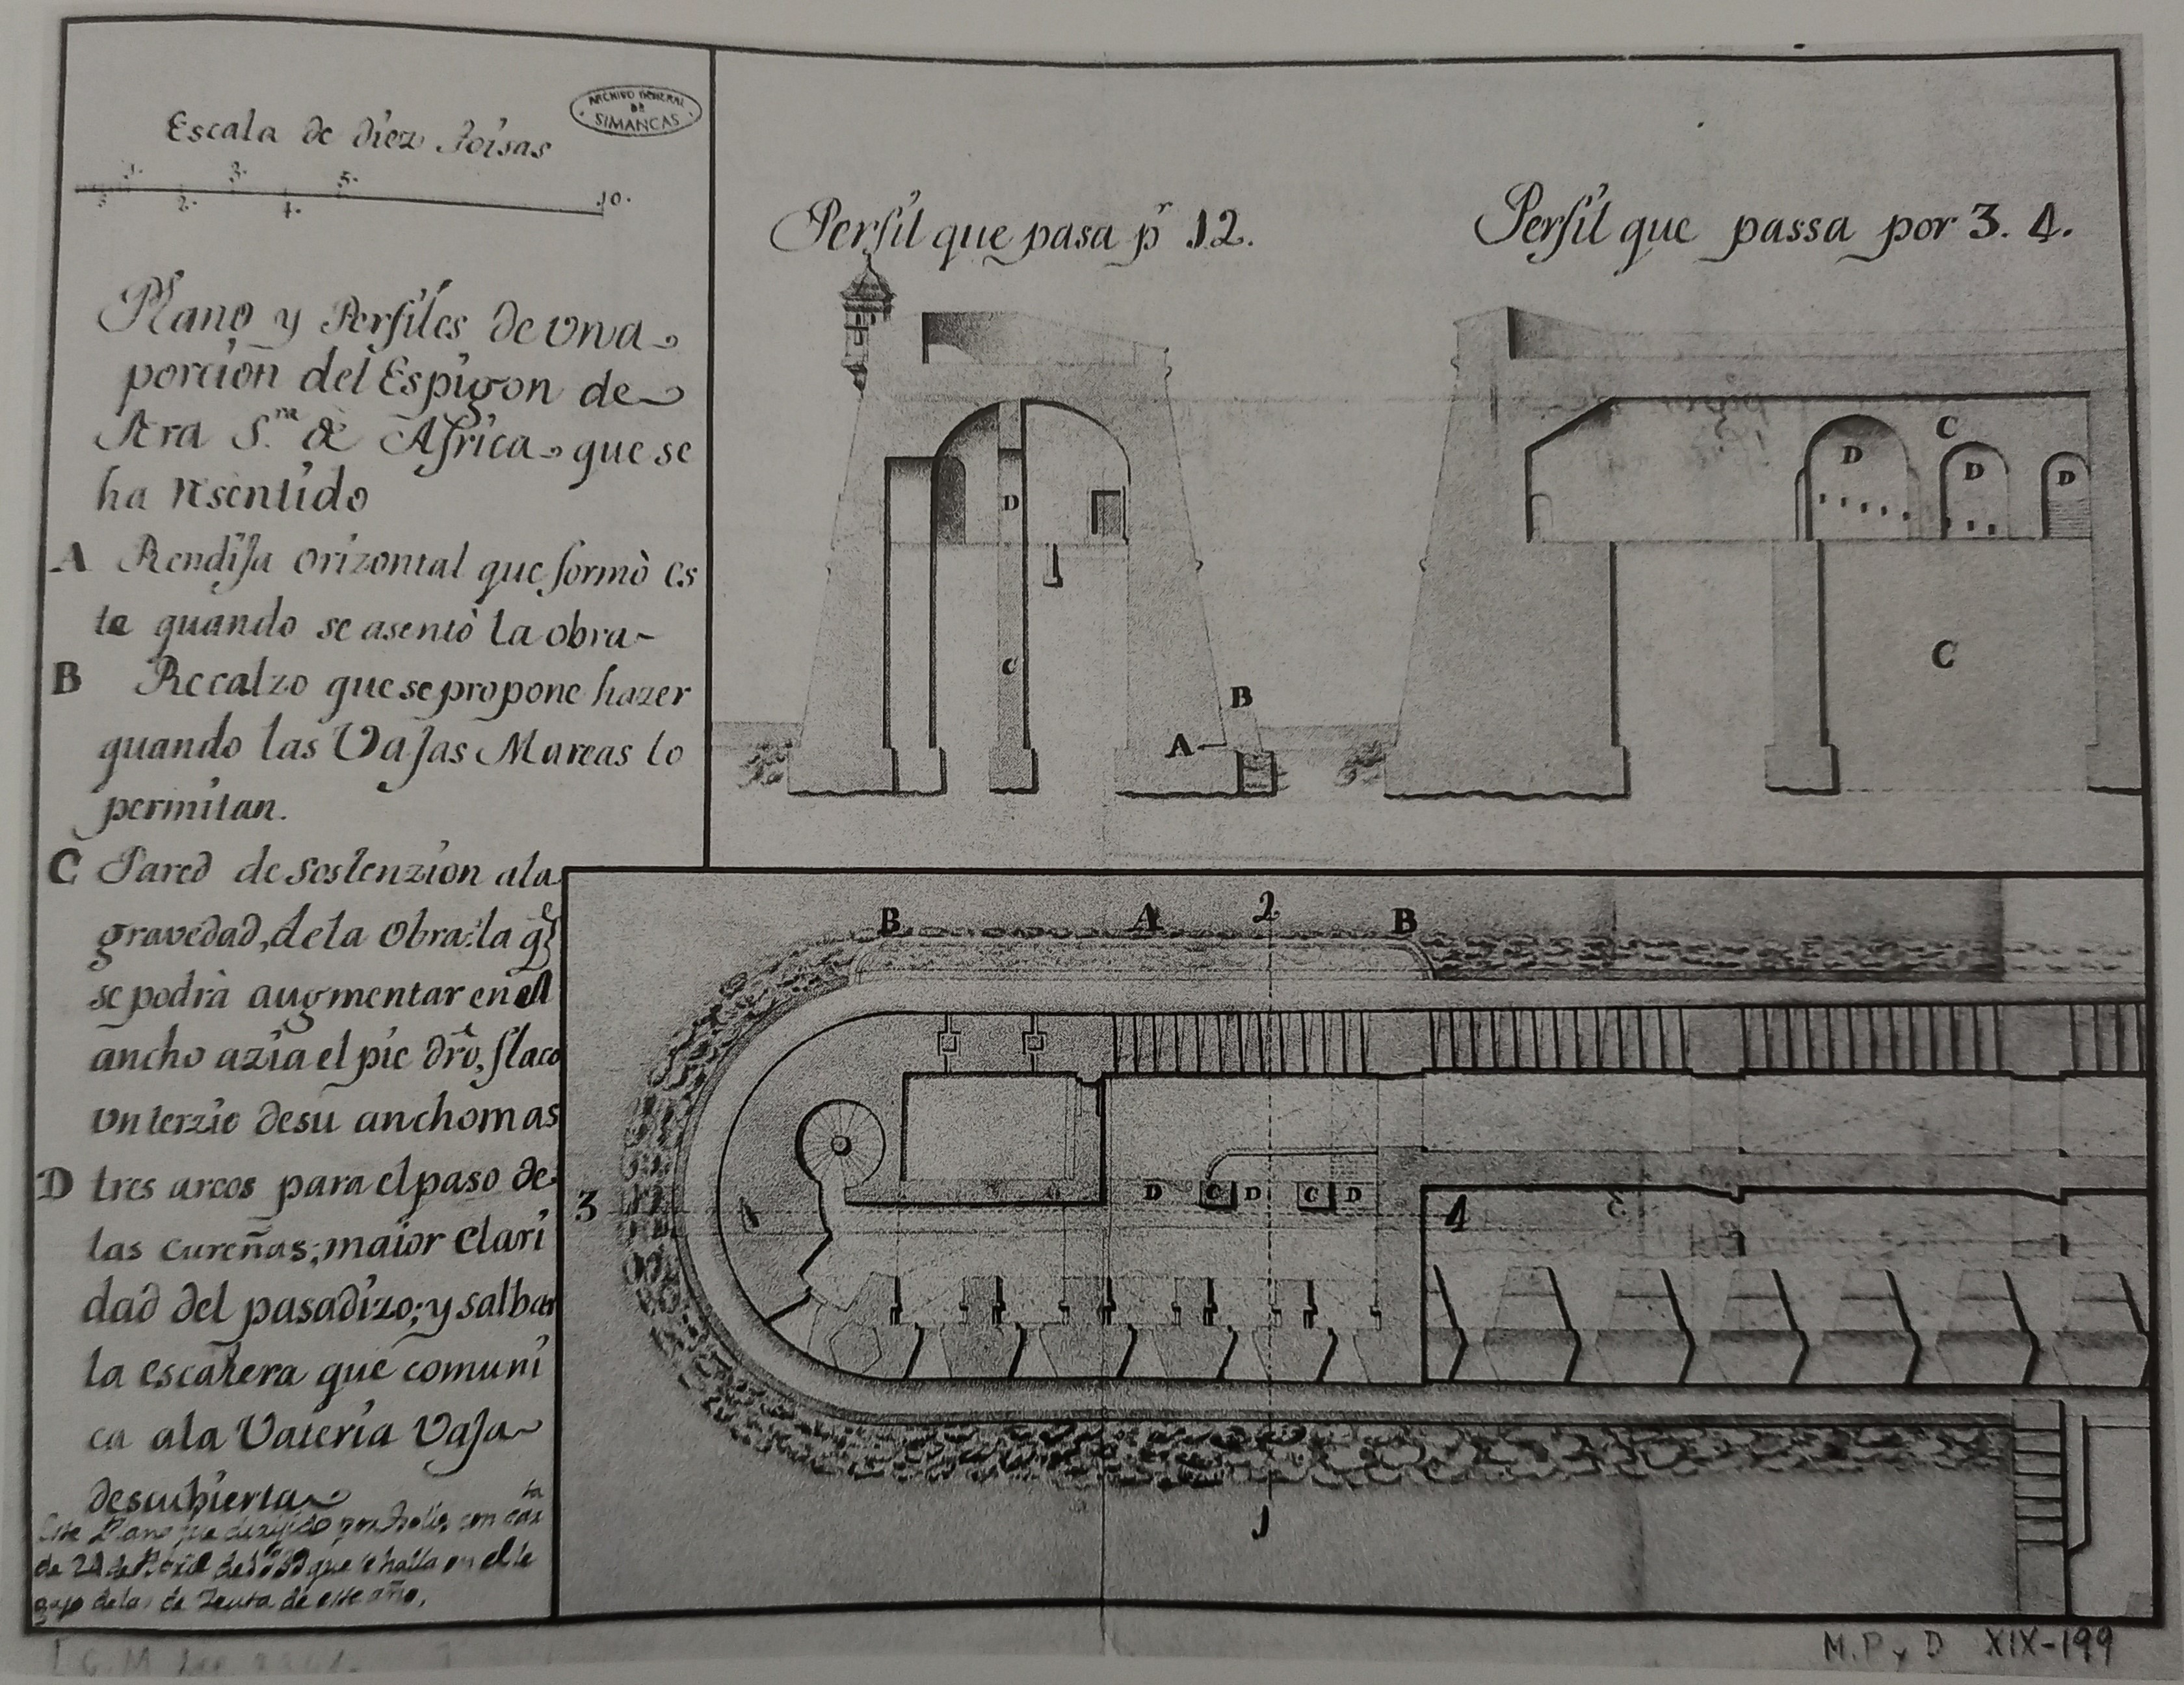 Escala de diez Toisas
ARCHIVO GENERAL
DE
SIMANCAS
1. 3. 5.
2. 4. 10.
Plano y Perfiles de Una
porcion del Espigon de
Ntra S.ra de Africa que se
ha resentido
A Rendija Orizontal que formò es
te quando se asentò la obra
B Recalzo que se propone hazer
quando las Vajas Mareas lo
permitan.
C Pared de sostenzion ala
gravedad, de la Obra: la q.e
se podrà augmentar en el
ancho azia el pie dro, flaco
Un terzio de su ancho mas
D tres arcos para el paso de
las cureñas; maior Clari
dad del pasadizo; y salbar
la escalera que comuni
ca ala Vateria Vaja
descubierta
Este Plano fue dirijido por con carta
de de que se halla en el le
gajo de las de Zeuta de este año.
Perfil que pasa p.r 1 2.
Perfil que passa por 3. 4.
D
C
B
A
C
D D D
C
B A 2 B
3 D C D C D 4 C
1
M.P y D XIX-199